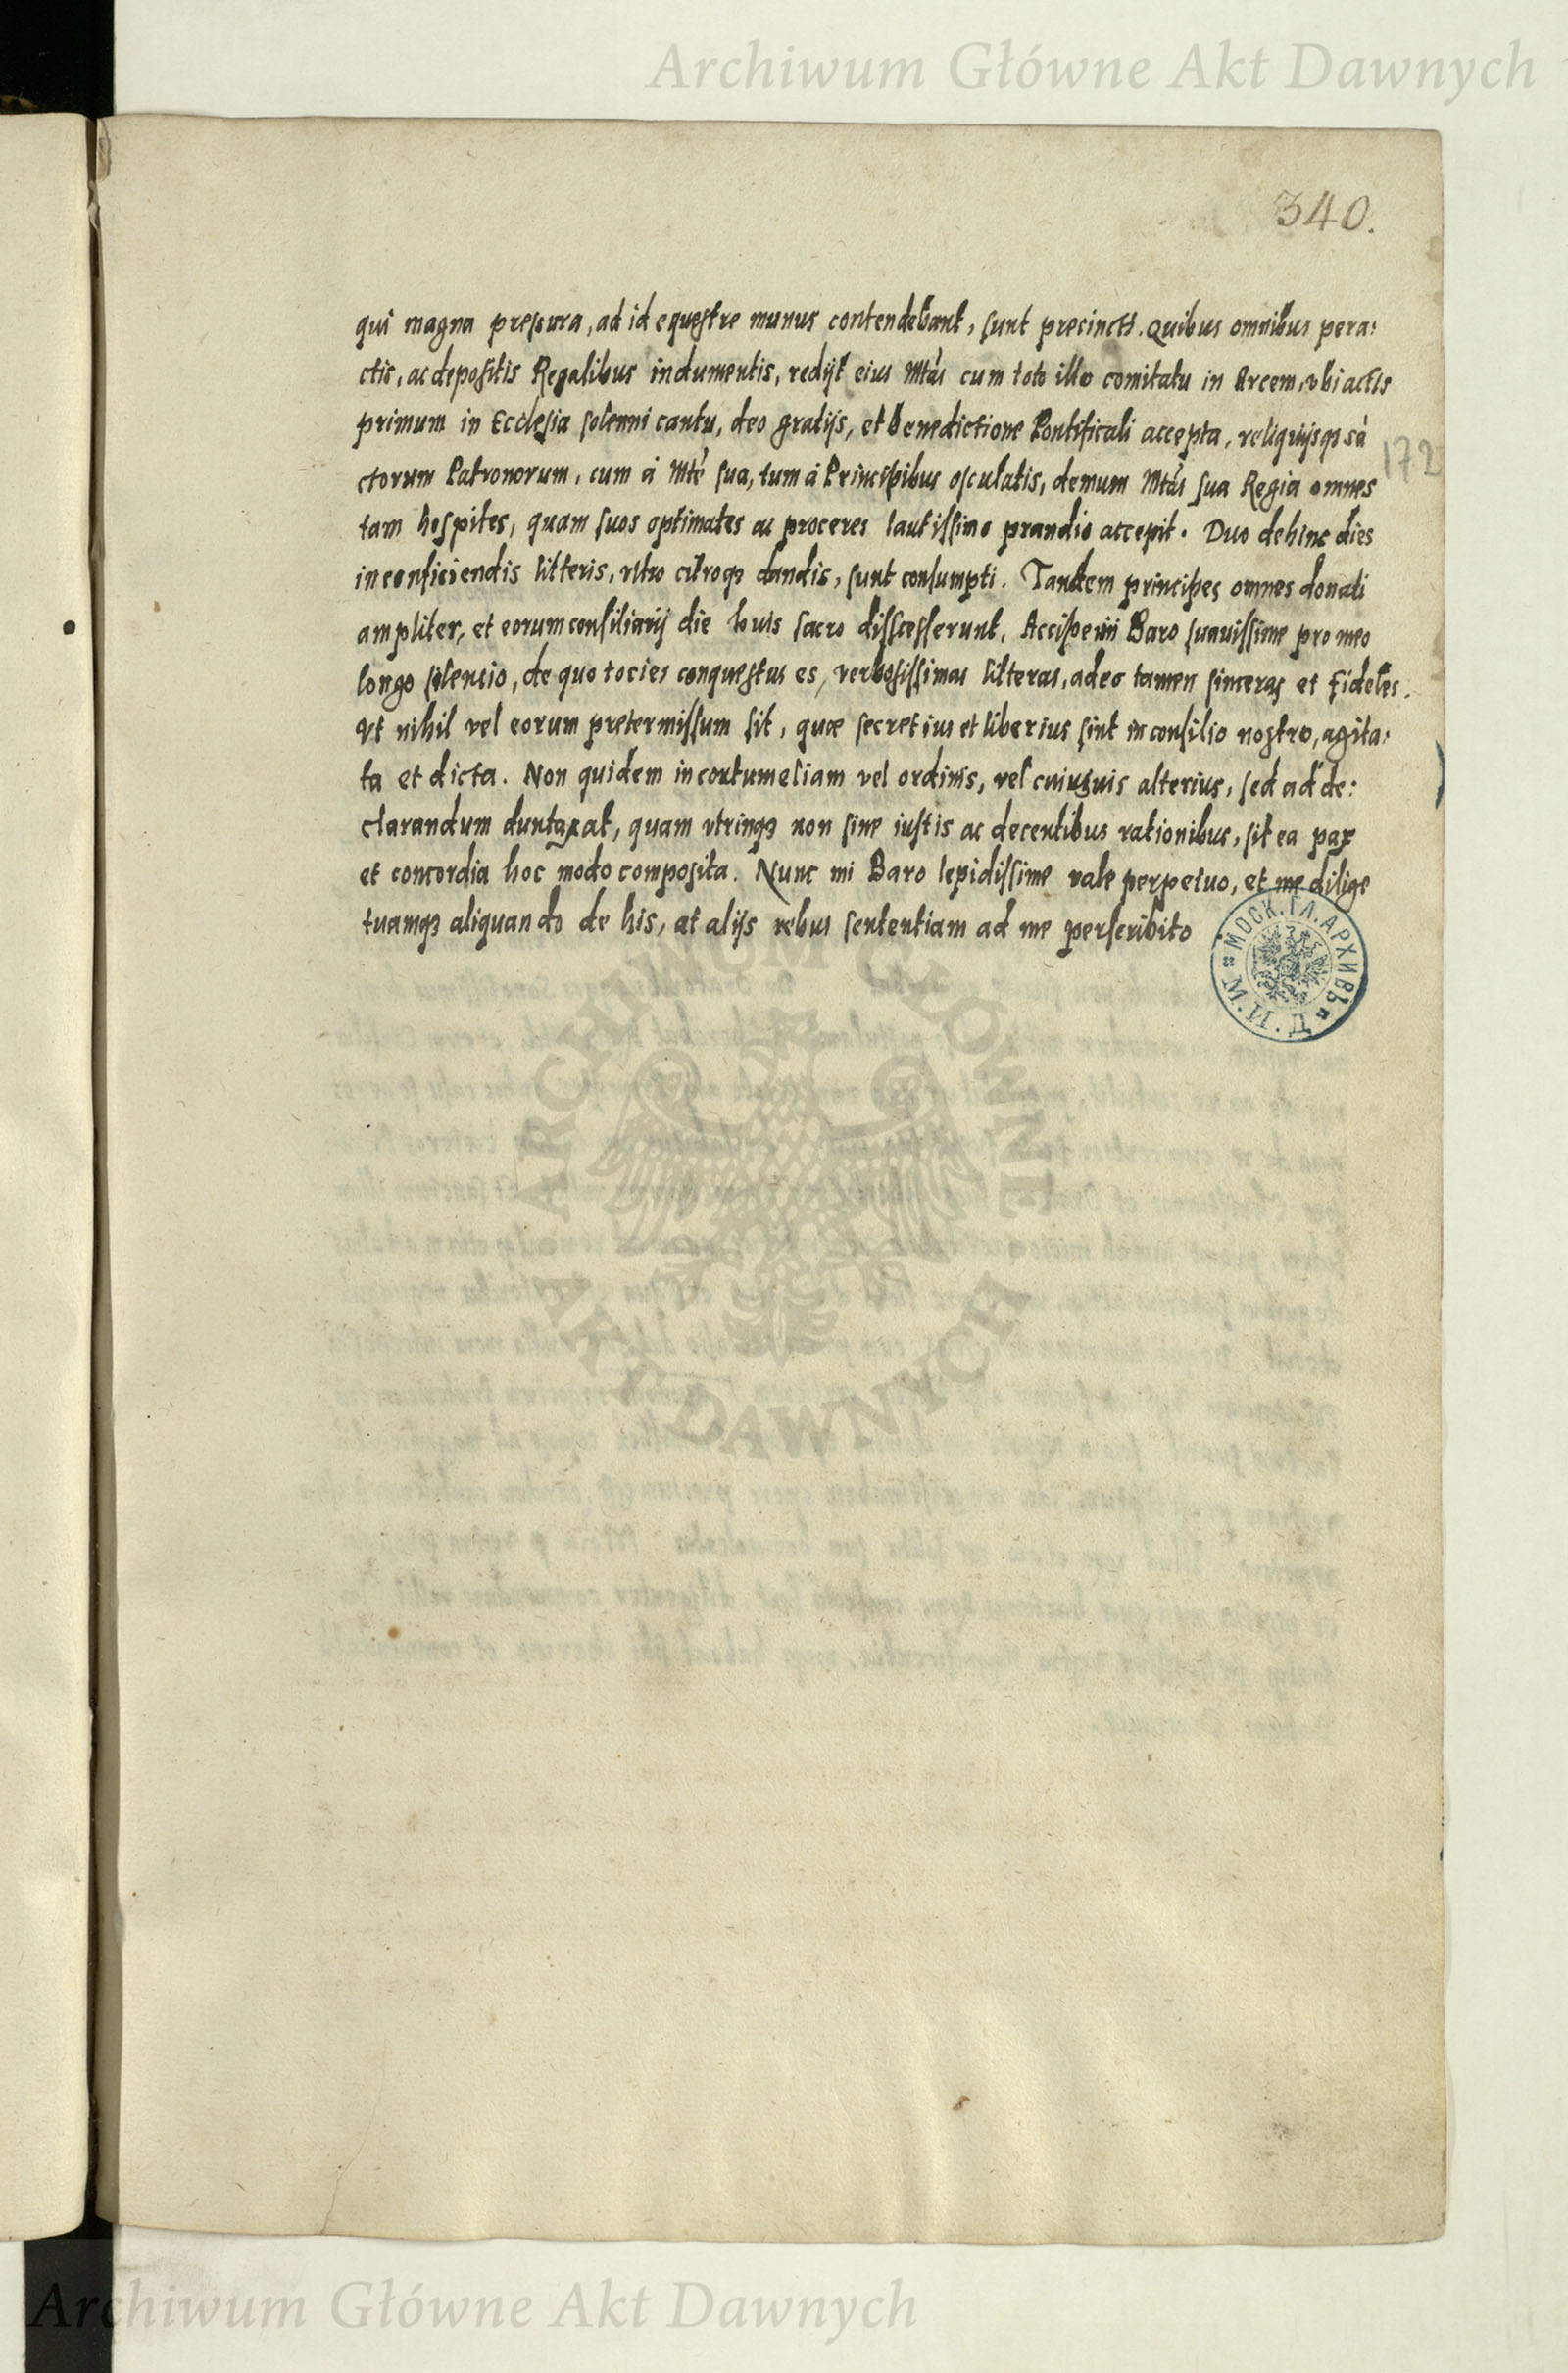 Archiwum Główne Akt Dawnych
340.
qui magna pressura, ad id equestre munus contendebant, sunt precincti. Quibus omnibus pera:
ctis, ac depositis Regalibus indumentis, redijt eius Mtas cum toto illo comitatu in Arcem, vbi actis
primum in Ecclesia solenni cantu, deo gratijs, et benedictione Pontificali accepta, reliquijsqȝ sā
172
ctorum Patronorum, cum à Mte sua, tum à Principibus osculatis, demum Mtas sua Regia omnes
tam hospites, quam suos optimates ac proceres lautissimo prandio accepit. Duo dehinc dies
in conficiendis litteris, vltro citroqȝ dandis, sunt consumpti. Tandem principes omnes donati
ampliter, et eorum consiliarij die Iouis sacro disscesserunt. Accipe mi Baro suauissime pro meo
longo silencio, de quo tocies conquestus es, verbosissimas litteras, adeo tamen sinceras et fideles.
Vt nihil vel eorum pretermissum sit, quæ secretius et liberius sint in consilio nostro, agita:
ta et dicta. Non quidem in contumeliam vel ordinis, vel cuiusuis alterius, sed ad de:
clarandum duntaxat, quam vtrinqȝ non sine iustis ac decentibus rationibus, sit ea pax
et concordia hoc modo composita. Nunc mi Baro lepidissime vale perpetuo, et me dilige
tuamqȝ aliquando de his, at alijs rebus sententiam ad me perscribito
МОСК. ГЛ. АРХИВЪ М. И. Д.
ARCHIWUM GŁÓWNE
AKT DAWNYCH
Archiwum Główne Akt Dawnych